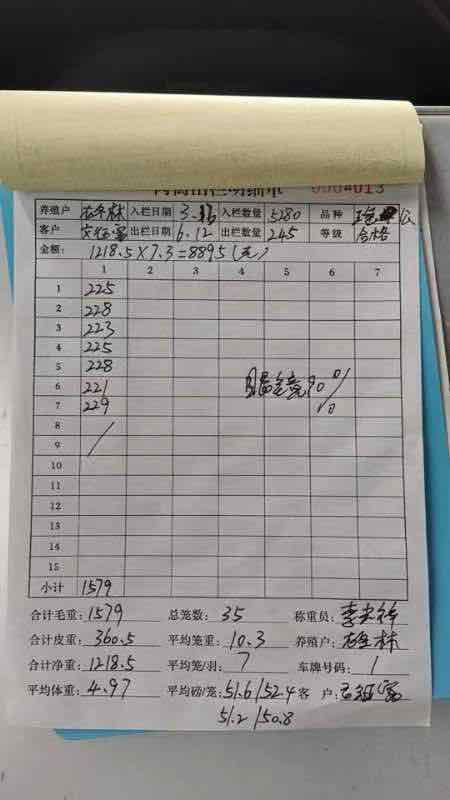 肉鸡出栏明细单 0004013
养殖户 入栏日期 3. 入栏数量 5280 品种 公
客户 出栏日期 6.12 出栏数量 245 等级 合格
金额: 1218.5×7.3=8895(元)
1 2 3 4 5 6 7
1 225
2 228
3 223
4 225
5 228
6 221
7 229
8
9
10
11
12
13
14
15
小计 1579
合计毛重: 1579 总笼数: 35 称重员:
合计皮重: 360.5 平均笼重: 10.3 养殖户: 林
合计净重: 1218.5 平均笼/羽: 7 车牌号码: 1
平均体重: 4.97 平均磅/笼: 51.6/52.4 客 户:
51.2/50.8